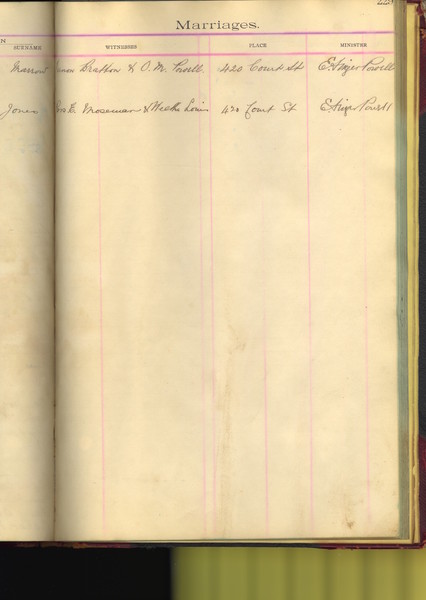 223
Marriages.
N
SURNAME WITNESSES PLACE MINISTER
Marrow Bratton & O. M. Powell 420 Court St E. Kizer Powell
Jones Moseman & Willie 420 Court St E. Kizer Powell